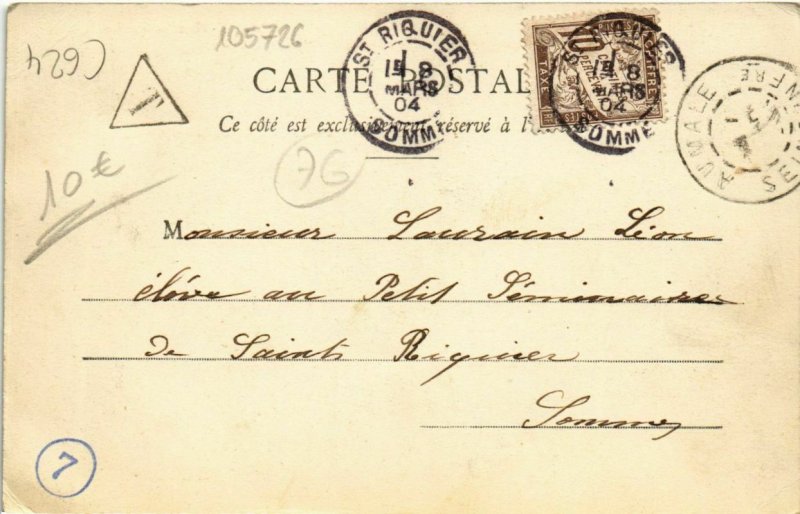 C624
105726
T
ST RIQUIER
1E 8
MARS
04
SOMME
CARTE POSTALE
Ce côté est exclusivement réservé à l'
10
TAXE
ST RIQUIER
1E 8
MARS
04
SOMME
AUMALE
SEINE INFRE
10 €
76
Monsieur Laurain Léon
élève au Petit Séminaire
de Saint Riquier
Somme
7